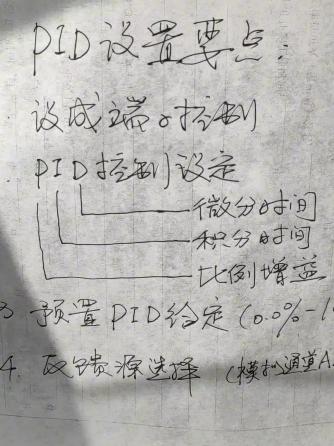 PID设置要点:
设成端口控制
PID控制设定
微分时间
积分时间
比例增益
3 预置PID给定(0.0%-1
4. 反馈源选择 (模拟通道A